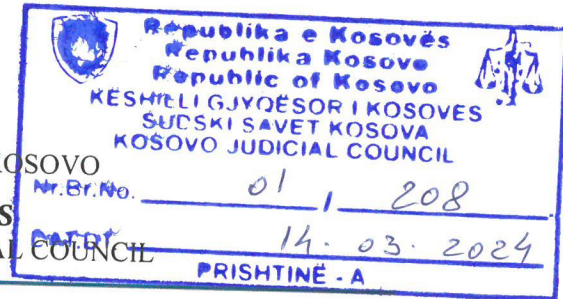 Republika e Kosovës
Republika Kosovo
Republic of Kosovo
KËSHILLI GJYQËSOR I KOSOVËS
SUDSKI SAVET KOSOVA
KOSOVO JUDICIAL COUNCIL
OSOVO
Nr.Br.No. 01 / 208
S
L COUNCIL
14. 03. 2024
PRISHTINË - A